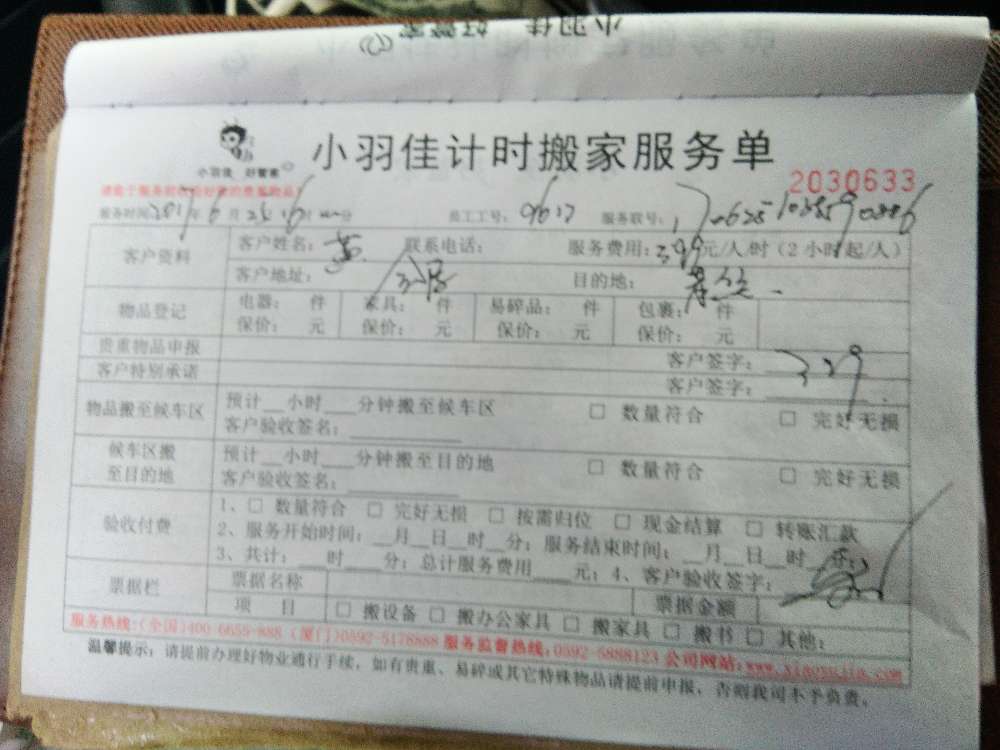 小羽佳 好管家
小羽佳 好管家
小羽佳计时搬家服务单
2030633
服务时间:2017年6月25日16时 分 员工工号:0617 服务联号:
客户资料 客户姓名: 联系电话: 服务费用:399元/人/时(2小时起/人)
客户地址: 目的地:
物品登记 电器: 件 家具: 件 易碎品: 件 包裹: 件
保价: 元 保价: 元 保价: 元 保价: 元
贵重物品申报 客户签字:
客户特别承诺 客户签字:
329
物品搬至候车区 预计__小时___分钟搬至候车区 □ 数量符合 □ 完好无损
客户验收签名:
候车区搬至目的地 预计__小时___分钟搬至目的地 □ 数量符合 □ 完好无损
客户验收签名:
验收付费 1、□ 数量符合 □ 完好无损 □ 按需归位 □ 现金结算 □ 转账汇款
2、服务开始时间:__月__日__时__分;服务结束时间:__月__日__时__分;
3、共计:___时___分;总计服务费用____元;4、客户验收签字:
票据栏 票据名称 票据金额
项 目 □ 搬设备 □ 搬办公家具 □ 搬家具 □ 搬书 □ 其他:
服务热线:(全国)400-6655-888 (厦门)0592-5178888 服务监督热线:0592-5888123 公司网站:www.xiaoyujia.com
温馨提示:请提前办理好物业通行手续,如有贵重、易碎或其它特殊物品请提前申报,否则我司不予负责。